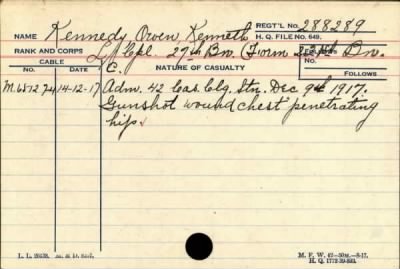 NAME Kennedy Owen Kenneth REGT'L NO. 288289
H. Q. FILE NO. 649.
RANK AND CORPS L/Cpl. 27th Bn. (Form. 221st Bn.
CABLE
NO. DATE NATURE OF CASUALTY FOLLOWS
C.
M.W5724 14-12-17 Adm. 42 Cas. Clg. Stn. Dec 9th 1917.
Gunshot wound chest penetrating
hip.
M. F. W. 42—50M.—8-17.
H. Q. 1772-39-893.